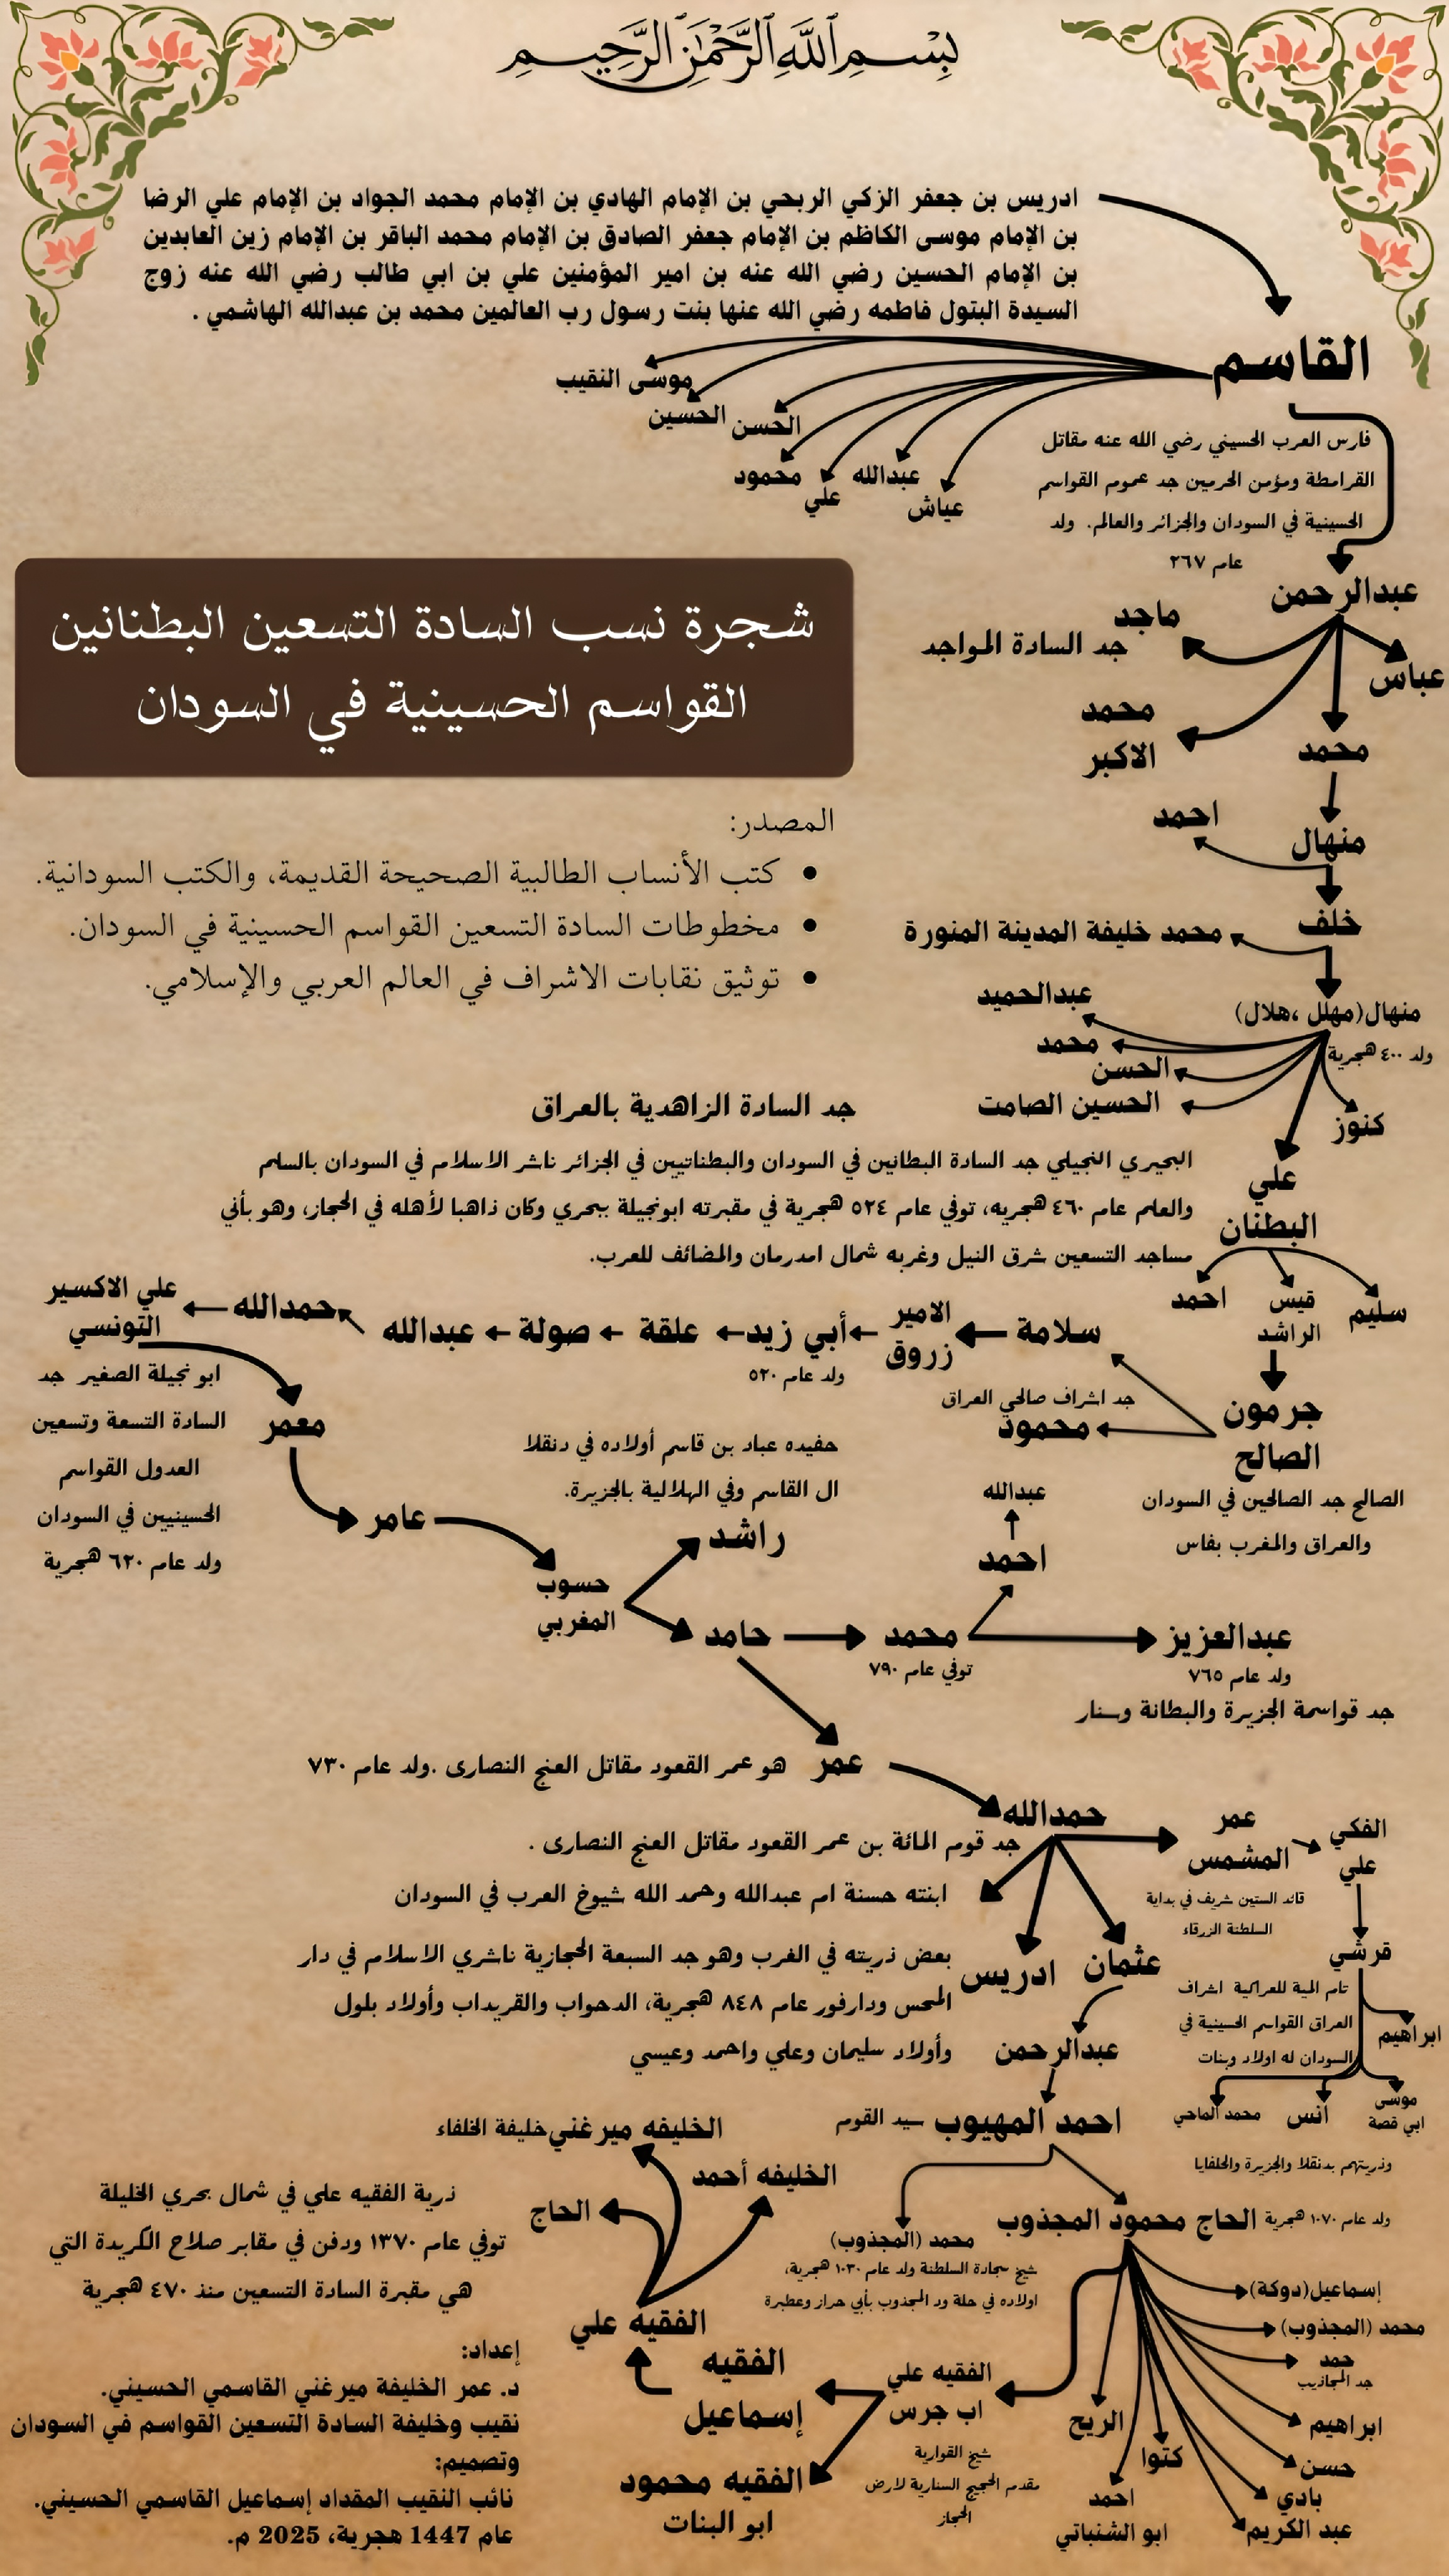 بِسْمِ اللَّهِ الرَّحْمَٰنِ الرَّحِيمِ
ادريس بن جعفر الزكي الربحي بن الإمام الهادي بن الإمام محمد الجواد بن الإمام علي الرضا
بن الإمام موسى الكاظم بن الإمام جعفر الصادق بن الإمام محمد الباقر بن الإمام زين العابدين
بن الإمام الحسين رضي الله عنه بن امير المؤمنين علي بن ابي طالب رضي الله عنه زوج
السيدة البتول فاطمه رضي الله عنها بنت رسول رب العالمين محمد بن عبدالله الهاشمي .
القاسم
موسى النقيب
الحسين
الحسن
محمود
علي
عبدالله
عياش
فارس العرب الحسيني رضي الله عنه مقاتل
القرامطة ومؤمن الحرمين جد عموم القواسم
الحسينية في السودان والجزائر والعالم. ولد
عام ٢٦٧
شجرة نسب السادة التسعين البطنانين
القواسم الحسينية في السودان
عبدالرحمن
ماجد
جد السادة المواجد
عباس
محمد
الاكبر
محمد
منهال
احمد
خلف
محمد خليفة المدينة المنورة
المصدر:
• كتب الأنساب الطالبية الصحيحة القديمة، والكتب السودانية.
• مخطوطات السادة التسعين القواسم الحسينية في السودان.
• توثيق نقابات الاشراف في العالم العربي والإسلامي.
منهال(مهلل ،هلال)
ولد ٤٠٠ هجرية
عبدالحميد
محمد
الحسن
الحسين الصامت
جد السادة الزاهدية بالعراق
كنوز
علي
البطنان
البحيري النجيلي جد السادة البطانين في السودان والبطناتيين في الجزائر ناشر الاسلام في السودان بالسلم
والعلم عام ٤٦٠ هجريه، توفي عام ٥٢٤ هجرية في مقبرته ابونجيلة ببحري وكان ذاهبا لأهله في الحجاز، وهو بأني
مساجد التسعين شرق النيل وغربه شمال امدرمان والمضائف للعرب.
سليم
قيس
الراشد
احمد
جرمون
الصالح
الصالح جد الصالحين في السودان
والعراق والمغرب بفاس
سلامة
جد اشراف صالحي العراق
محمود
الامير
زروق
أبي زيد
ولد عام ٥٢٠
علقة
صولة
عبدالله
حمدالله
علي الاكسير
التونسي
ابو نجيلة الصغير جد
السادة التسعة وتسعين
العدول القواسم
الحسينيين في السودان
ولد عام ٦٢٠ هجرية
معمر
عامر
حسوب
المغربي
حفيده عباد بن قاسم أولاده في دنقلا
ال القاسم وفي الهلالية بالجزيرة.
راشد
حامد
محمد
توفي عام ٧٩٠
احمد
عبدالله
عبدالعزيز
ولد عام ٧٦٥
جد قواسمة الجزيرة والبطانة وسنار
عمر
هو عمر القعود مقاتل العنج النصارى .ولد عام ٧٣٠
حمدالله
جد قوم المائة بن عمر القعود مقاتل العنج النصارى .
ابنته حسنة ام عبدالله وحمد الله شيوخ العرب في السودان
عمر
المشمس
قائد الستين شريف في بداية
السلطنة الزرقاء
الفكي
علي
قرشي
تام المية للعراكية اشراف
العراق القواسم الحسينية في
السودان له اولاد وبنات
ابراهيم
موسى
ابي قصة
انس
محمد الماحي
وذريتهم بدنقلا والجزيرة والحلفايا
عثمان
ادريس
بعض ذريته في الغرب وهو جد السبعة الحجازية ناشري الاسلام في دار
المحس ودارفور عام ٨٤٨ هجرية، الدحواب والقريداب وأولاد بلول
وأولاد سليمان وعلي واحمد وعيسي
عبدالرحمن
احمد المهيوب
سيد القوم
محمد (المجذوب)
شيخ سجادة السلطنة ولد عام ١٠٣٠ هجرية،
اولاده في حلة ود المجذوب بأبي حراز وعطبرة
الحاج محمود المجذوب
ولد عام ١٠٧٠ هجرية
إسماعيل(دوكة)
محمد (المجذوب)
حمد
جد المجاذيب
ابراهيم
حسن
بادي
عبد الكريم
كتوا
احمد
ابو الشنباتي
الريح
الفقيه علي
اب جرس
شيخ القوارية
مقدم الحجيج السنارية لارض
الحجاز
الفقيه
إسماعيل
الفقيه محمود
ابو البنات
الفقيه علي
الخليفه ميرغني
خليفة الخلفاء
الخليفه أحمد
الحاج
ذرية الفقيه علي في شمال بحري الخليلة
توفي عام ١٣٧٠ ودفن في مقابر صلاح الكريدة التي
هي مقبرة السادة التسعين منذ ٤٧٠ هجرية
إعداد:
د. عمر الخليفة ميرغني القاسمي الحسيني.
نقيب وخليفة السادة التسعين القواسم في السودان
وتصميم:
نائب النقيب المقداد إسماعيل القاسمي الحسيني.
عام 1447 هجرية، 2025 م.